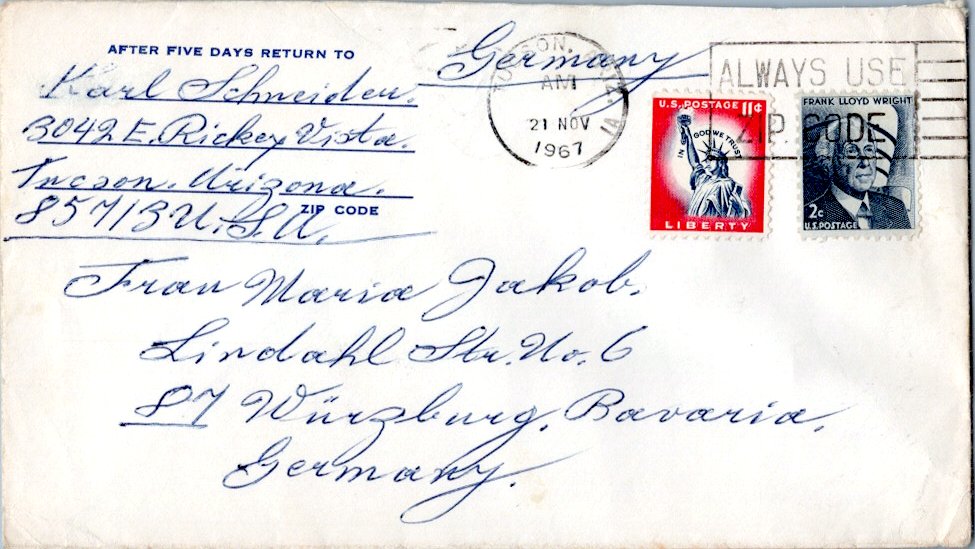 AFTER FIVE DAYS RETURN TO
Karl Schneider.
3042 E. Rickey Vista.
Tucson. Arizona.
85713 U.S.A.
ZIP CODE
Germany
TUCSON, ARIZ.
AM
21 NOV
1967
1A
ALWAYS USE
ZIP CODE
U.S. POSTAGE 11¢
IN GOD WE TRUST
LIBERTY
FRANK LLOYD WRIGHT
2c
U.S. POSTAGE
Frau Maria Jakob.
Lindahl Str. No. 6
87 Würzburg. Bavaria.
Germany.